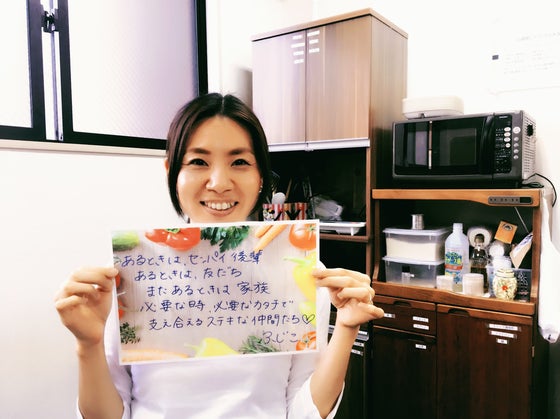 あるときは、センパイ後輩
あるときは、友だち
またあるときは 家族
必要な時、必要なカタチで
支え合えるステキな仲間たち♡
ふじこ